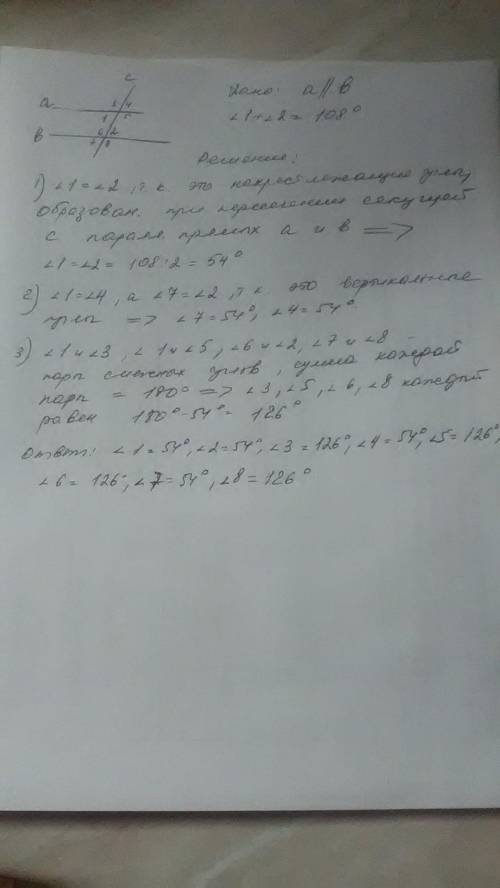 c
Дано: a || b
a 3 4
∠1+∠2 = 108°
1 5
b 6 2
7 8
Решение:
1) ∠1=∠2, т.к. это накрест лежащие углы,
образован. при пересечении секущей
с паралл. прямых a и b =>
∠1=∠2= 108:2 = 54°
2) ∠1=∠4, а ∠7=∠2, т.к. это вертикальные
углы => ∠7=54°, ∠4=54°.
3) ∠1 и ∠3, ∠1 и ∠5, ∠6 и ∠2, ∠7 и ∠8
пары смежных углов, сумма каждой
пары = 180° => ∠3, ∠5, ∠6, ∠8 каждый
равен 180°-54°= 126°
Ответ: ∠1=54°, ∠2=54°, ∠3=126°, ∠4=54°, ∠5=126°,
∠6= 126°, ∠7=54°, ∠8=126°